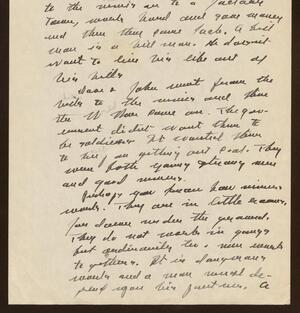 to the mines or to a factory
town, works hard and saves money
and then they come back. A hill
man is a hill man. He doesn't
want to live his life out of
his hills
Dave & John went from the
hills to the mines and then
the W War came on. The gov-
ernment didn't want them to
be soldiers. It wanted them
to keep on getting out coal. They
were both young strong men
and good miners.
Perhaps you know how miners
work. They are in little rooms,
far down under the ground.
They do not work in gangs
but ordinarily two men work
together. It is dangerous
work and a man must de-
pend upon his partner. A